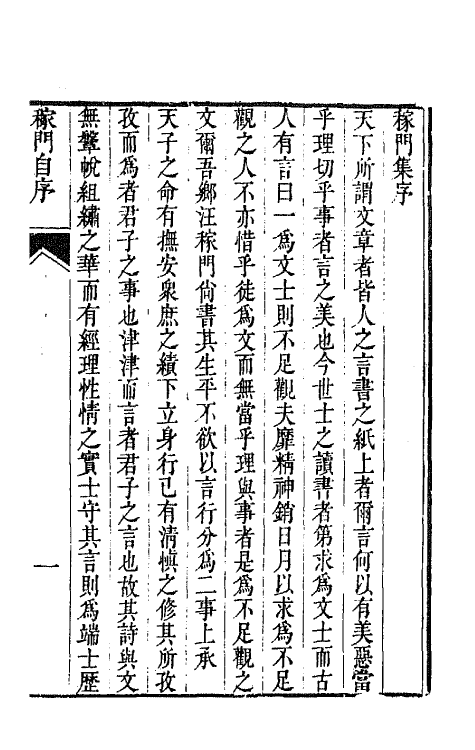 稼門集序
天下所謂文章者皆人之言書之紙上者爾言何以有美惡當
乎理切乎事者言之美也今世士之讀書者第求爲文士而古
人有言曰一爲文士則不足觀夫靡精神銷日月以求爲不足
觀之人不亦惜乎徒爲文而無當乎理與事者是爲不足觀之
文爾吾鄉汪稼門尙書其生平不欲以言行分爲二事上承
天子之命有撫安衆庶之績下立身行己有淸楨之修其所孜
孜而爲者君子之事也津津而言者君子之言也故其詩與文
無鞶帨組繡之華而有經理性情之實士守其言則爲端士歷
稼門自序
一